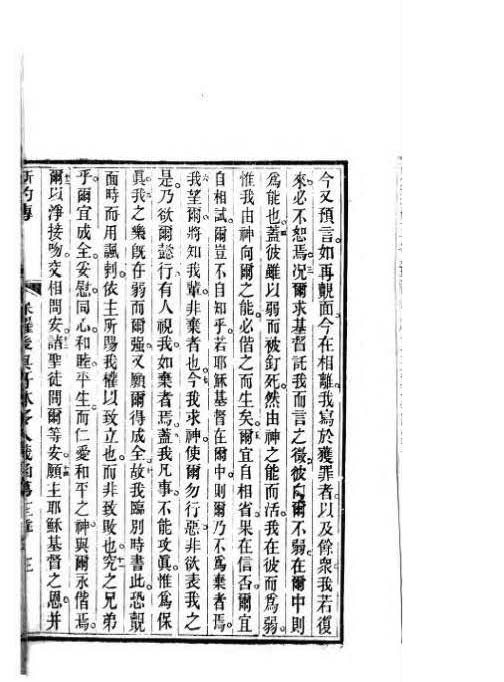 今又預言。如再覿面。今在相離。我寫於獲罪者。以及餘眾。我若復
來必不恕焉。況爾求基督託我而言之徵。彼向爾不弱。在爾中則
為能也。蓋彼雖以弱而被釘死。然由神之能而活。我在彼而為弱。
惟我由神向爾之能。必偕之而生矣。爾宜自相省。果在信否。爾宜
自相試。爾豈不自知乎。若耶穌基督在爾中。則爾乃不為棄者焉。
我望爾將知我輩非棄者也。今我求神。使爾勿行惡。非欲表我之
是。乃欲爾懿行。有人視我如棄者焉。蓋我凡事不能攻眞。惟為保
眞。我之樂。旣在弱而爾強。又願爾得成全。故我臨別時書此。恐覿
面時而用諷刺。依主所賜我權。以致立也。而非致敗也。究之兄弟
乎。爾宜成全。安慰。同心和睦。平生而仁愛和平之神與爾永偕焉。
爾以淨接吻。交相問安。諸聖徒問爾等安。願主耶穌基督之恩。並